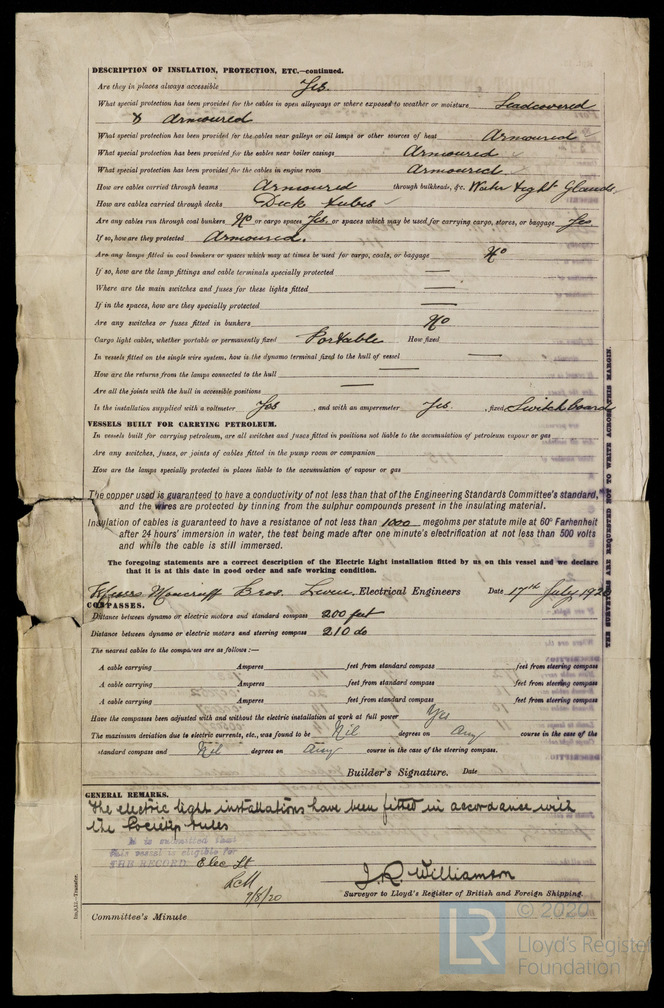 DESCRIPTION OF INSULATION, PROTECTION, ETC.—continued.
Are they in places always accessible Yes.
What special protection has been provided for the cables in open alleyways or where exposed to weather or moisture Leadcovered
& Armoured
What special protection has been provided for the cables near galleys or oil lamps or other sources of heat Armoured
What special protection has been provided for the cables near boiler casings Armoured
What special protection has been provided for the cables in engine room Armoured.
How are cables carried through beams Armoured through bulkheads, &c. Water tight Glands.
How are cables carried through decks Deck tubes
Are any cables run through coal bunkers No or cargo spaces Yes. or spaces which may be used for carrying cargo, stores, or baggage Yes
If so, how are they protected Armoured.
Are any lamps fitted in coal bunkers or spaces which may at times be used for cargo, coals, or baggage No
If so, how are the lamp fittings and cable terminals specially protected —
Where are the main switches and fuses for these lights fitted —
If in the spaces, how are they specially protected —
Are any switches or fuses fitted in bunkers No
Cargo light cables, whether portable or permanently fixed Portable How fixed
In vessels fitted on the single wire system, how is the dynamo terminal fixed to the hull of vessel —
How are the returns from the lamps connected to the hull —
Are all the joints with the hull in accessible positions —
Is the installation supplied with a voltmeter Yes , and with an amperemeter Yes. , fixed Switch board
VESSELS BUILT FOR CARRYING PETROLEUM.
In vessels built for carrying petroleum, are all switches and fuses fitted in positions not liable to the accumulation of petroleum vapour or gas
Are any switches, fuses, or joints of cables fitted in the pump room or companion
How are the lamps specially protected in places liable to the accumulation of vapour or gas
The copper used is guaranteed to have a conductivity of not less than that of the Engineering Standards Committee's standard,
and the wires are protected by tinning from the sulphur compounds present in the insulating material.
Insulation of cables is guaranteed to have a resistance of not less than 1000 megohms per statute mile at 60° Farhenheit
after 24 hours' immersion in water, the test being made after one minute's electrification at not less than 500 volts
and while the cable is still immersed.
The foregoing statements are a correct description of the Electric Light installation fitted by us on this vessel and we declare
that it is at this date in good order and safe working condition.
Moncrieff Bros. Electrical Engineers Date 17th July 1920
COMPASSES.
Distance between dynamo or electric motors and standard compass 200 feet
Distance between dynamo or electric motors and steering compass 210 do
The nearest cables to the compasses are as follows:—
A cable carrying Amperes feet from standard compass feet from steering compass
A cable carrying Amperes feet from standard compass feet from steering compass
A cable carrying Amperes feet from standard compass feet from steering compass
Have the compasses been adjusted with and without the electric installation at work at full power Yes
The maximum deviation due to electric currents, etc., was found to be Nil degrees on Any course in the case of the
standard compass and Nil degrees on Any course in the case of the steering compass.
Builder's Signature. Date
GENERAL REMARKS.
The electric light installations have been fitted in accordance with
the Society's rules
It is submitted that
this vessel is eligible for
THE RECORD. Elec Lt
9/8/20
J. R. Williamson
Surveyor to Lloyd's Register of British and Foreign Shipping.
Committee's Minute
THE SURVEYORS ARE REQUESTED NOT TO WRITE ACROSS THIS MARGIN.
© 2020
LR
Lloyd's Register
Foundation